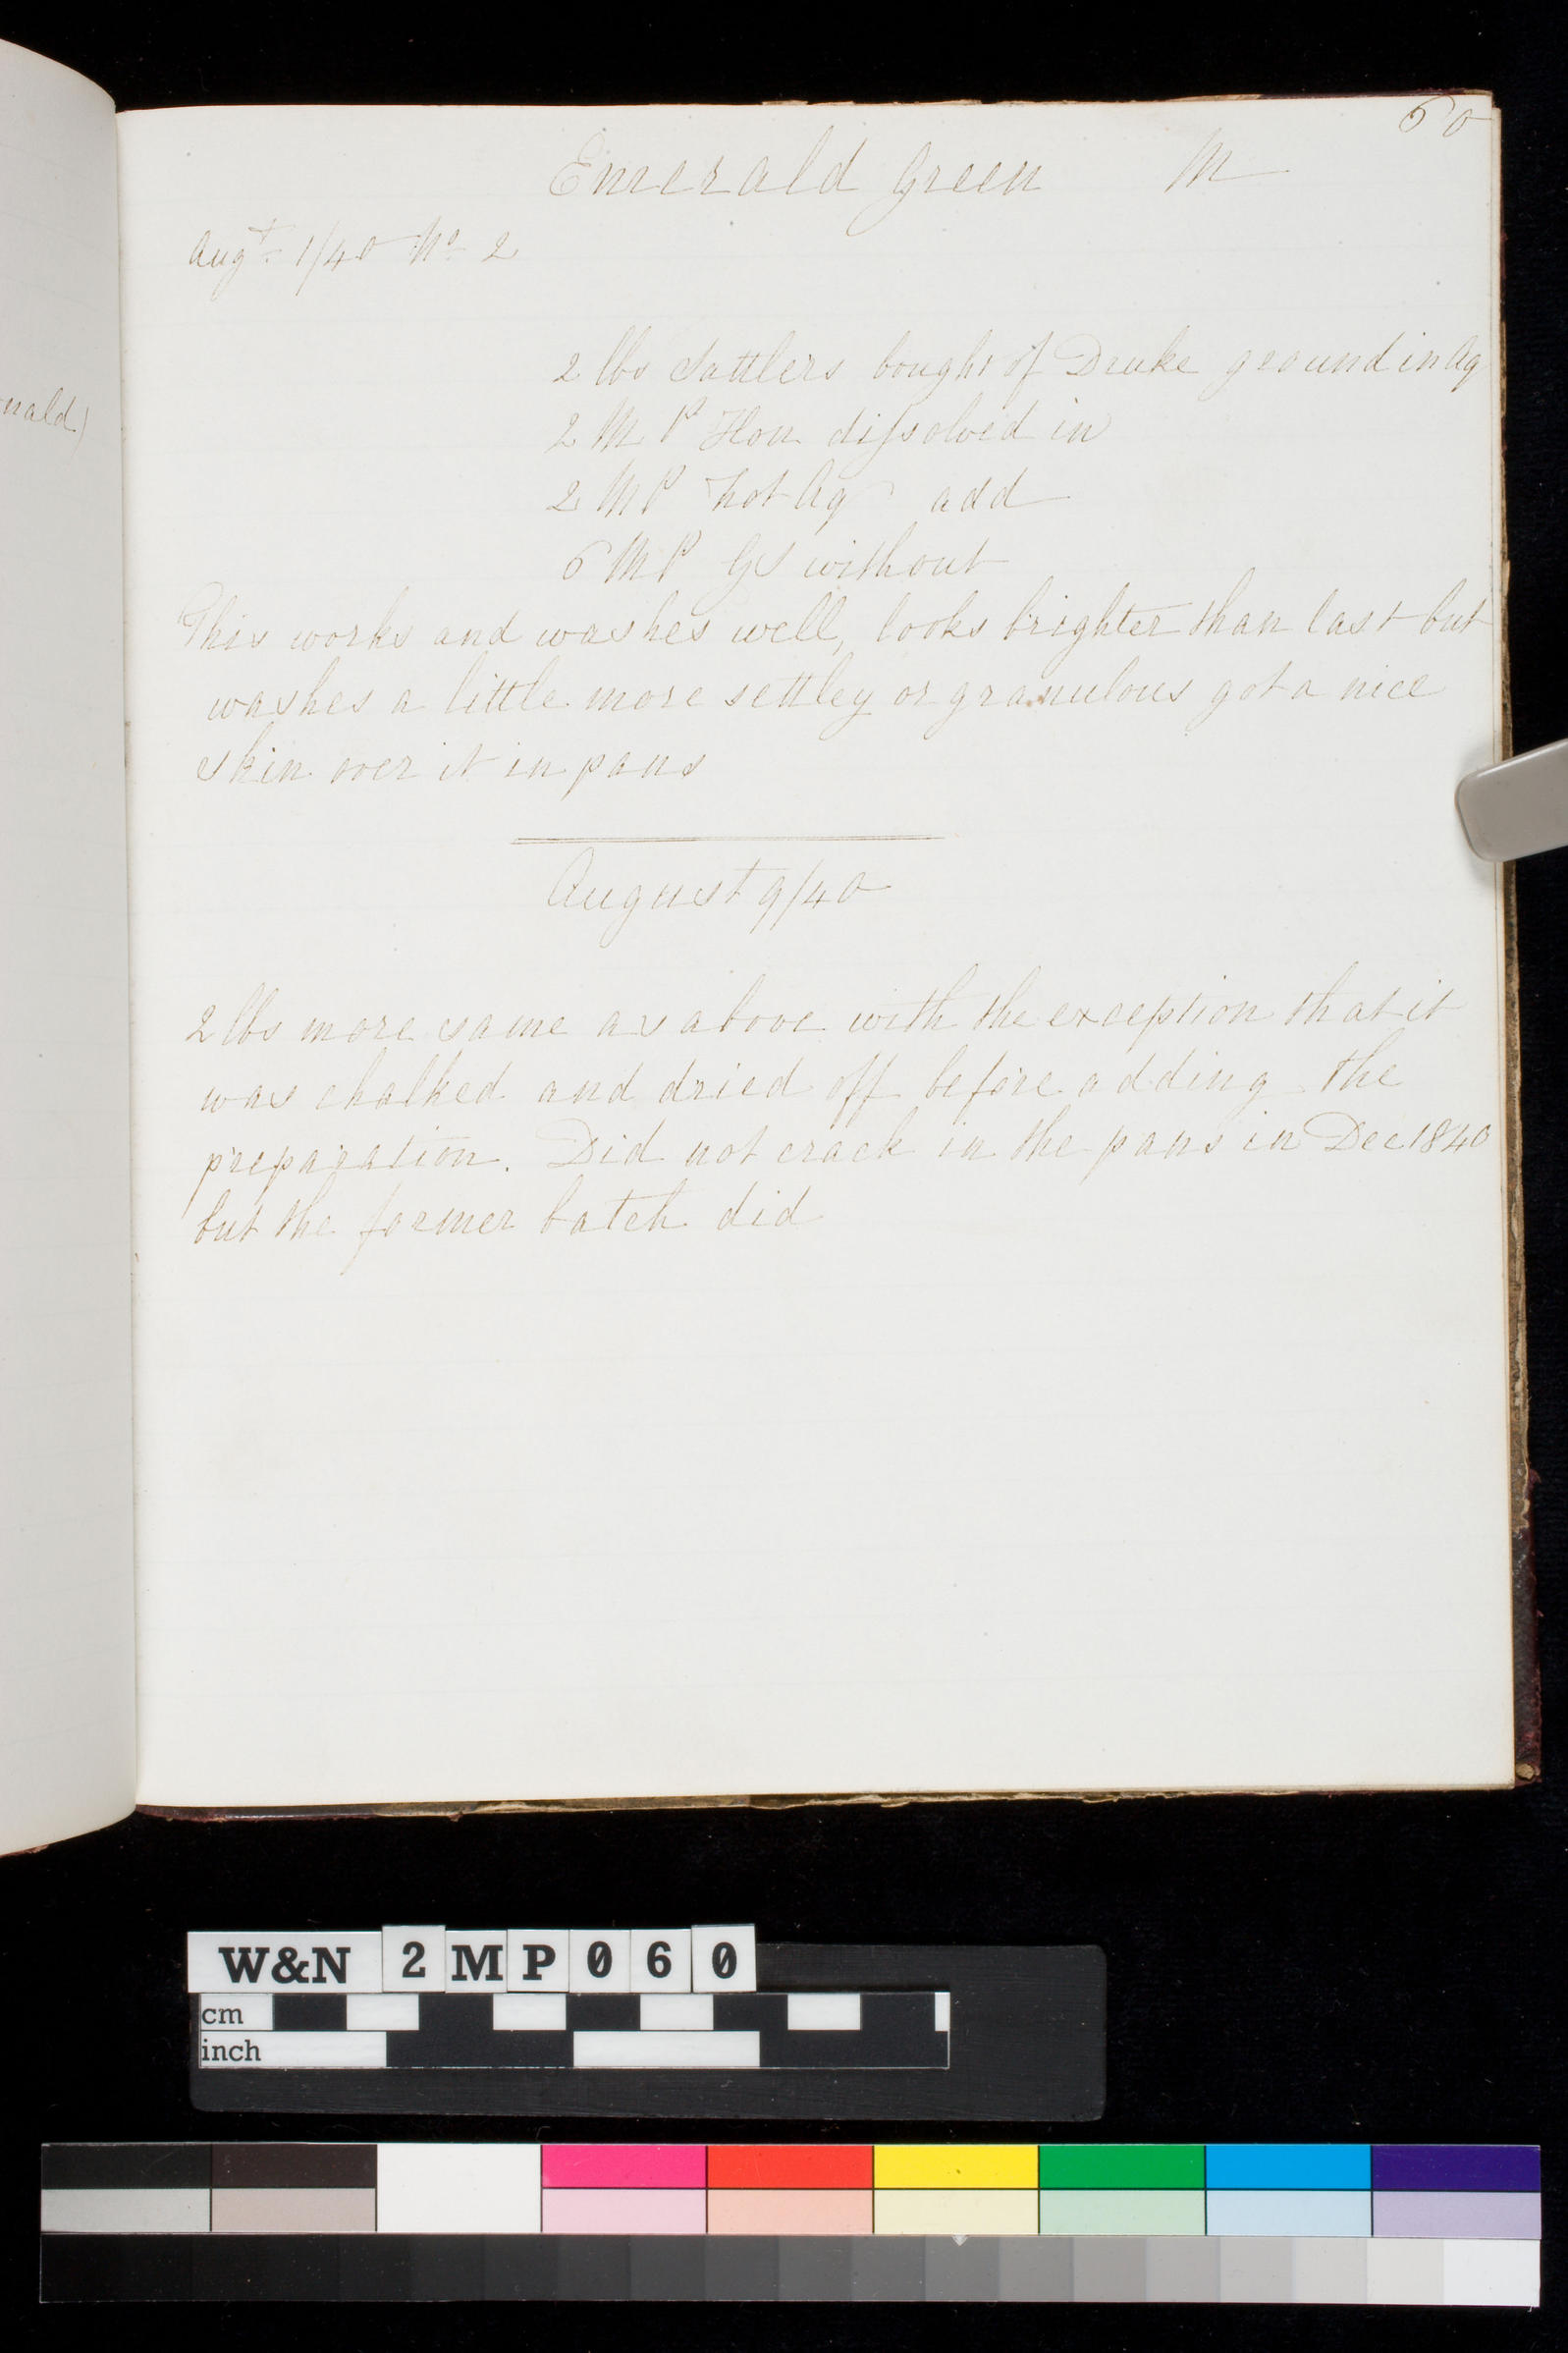 60
Emerald Green M
Augt 1/40 No 2
nald)
2 lbs Sattlers bought of Drake ground in Aq
2 M P Hon dissolved in
2 M P hot Aq add
6 M P GS without
This works and washes well, looks brighter than last but
washes a little more settley or granulous got a nice
skin over it in pans
August 9/40
2 lbs more same as above with the exception that it
was chalked and dried off before adding the
preparation. Did not crack in the pans in Dec 1840
but the former batch did
W&N 2MP060
cm
inch